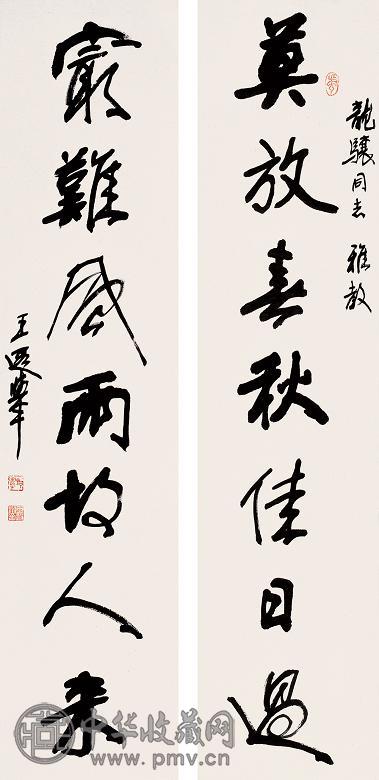 龍驤同志 雅教
莫放春秋佳日過
最難風雨故人來
王遐舉
中华收藏网
www.pmv.cn